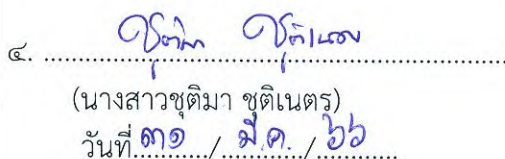 ๔. ชุติมา ชุติเนตร
(นางสาวชุติมา ชุติเนตร)
วันที่ ๓๑ / มี.ค. / ๖๖